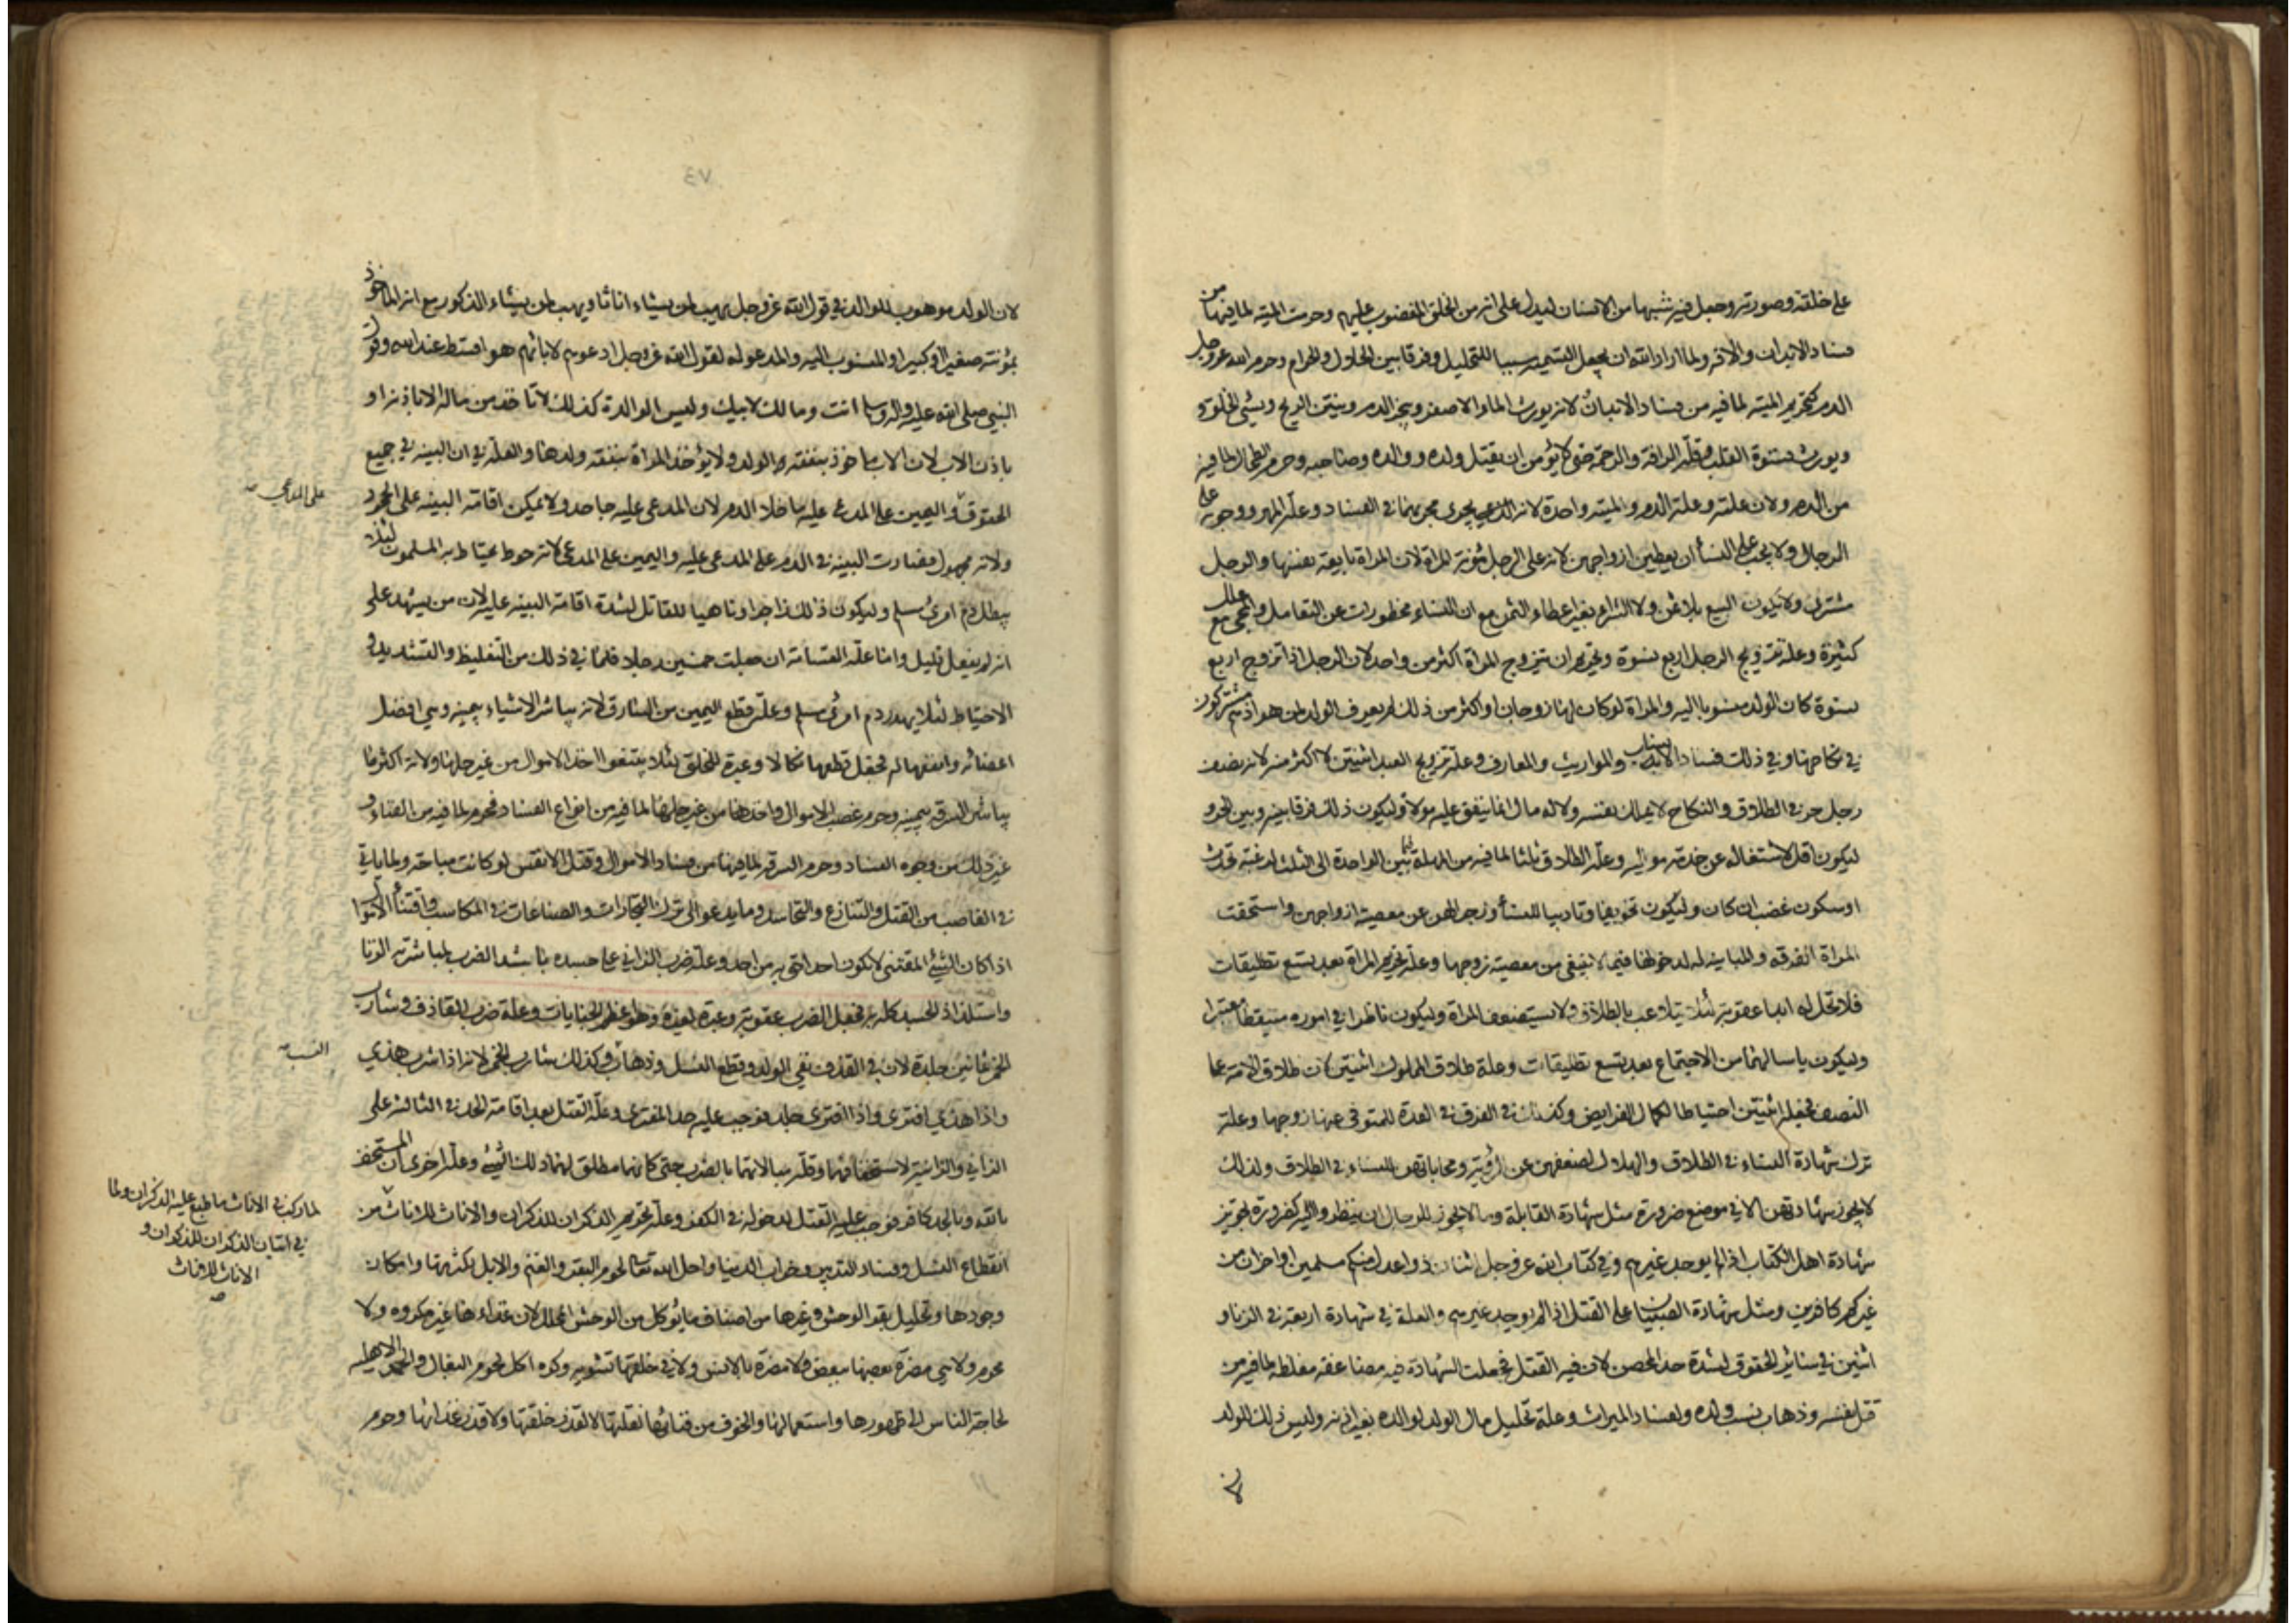 على خلقته وصورته وجعل فيه شبها من الانسان ليدل على انه من الخلق المغضوب عليهم وحرمت الميته لما فيها من
فساد الابدان والآفه ولما اراد الله ان يجعل التسميه سببا للتحليل وفرقا بين الحلال والحرام وحرم الله عز وجل
الدم كتحريم الميته لما فيه من فساد الابدان لانه يورث الماء الاصفر ويبخر الدم وينتن الريح ويسئ الخلق
ويورث قسوة القلب وقلة الرافة والرحمة حتى لا يؤمن ان يقتل ولده ووالده وصاحبه وحرم الطحال لما فيه
من الدم ولان علته وعلة الدم والميته واحدة لانه يجرى مجريهما في الفساد وعلة المهر ووجوبه على
الرجال ولا يجب على النسأ ان يعطين ازواجهن لانه على الرجل مؤنة المراة لان المراة بايعة نفسها والرجل
مشترى ولا يكون البيع بلا ثمن ولا الشراء بغير اعطاء الثمن مع ان النساء محظورات عن التعامل والمجئ مع علل
كثيرة وعلة تزويج الرجل اربع نسوة وتحريم ان تتزوج المراة اكثر من واحد لان الرجل اذا تزوج اربع
نسوة كان الولد منسوبا اليه والمراة لو كان لها زوجان او اكثر من ذلك لم يعرف الولد لمن هو اذ هم مشتركون
في نكاحها وفي ذلك فساد الانساب والمواريث والمعارف وعلة تزويج العبد اثنتين لا اكثر منه لانه نصف
رجل حر في الطلاق والنكاح لا يملك نفسه ولا له مال انما ينفق عليه مولاه وليكون ذلك فرقا بينه وبين الحر و
ليكون اقل لاشتغاله عن خدمة مواليه وعلة الطلاق ثلثا لما فيه من المهلة فيما بين الواحدة الى الثلث لرغبة تحدث
او سكون غضب ان كان وليكون تخويفا وتاديبا للنسأ وزجرا لهن عن معصية ازواجهن واستحقت
المراة الفرقه والمباينه لدخولها فيما لا ينبغى من معصية زوجها وعلة تحريم المراة بعد تسع تطليقات
فلا تحل له ابدا عقوبة لئلا يتلاعب بالطلاق ولا يستضعف المراة وليكون ناظرا في اموره متيقظا معتبرا
وليكون ياسا لهما من الاجتماع بعد تسع تطليقات وعلة طلاق المملوك اثنتين لان طلاق الامة على
النصف فجعله اثنتين احتياطا لكمال الفرايض وكذلك في الفرق في العدة للمتوفى عنها زوجها وعلة
ترك شهادة النساء في الطلاق والهلال لضعفهن عن الرؤية ومحاباتهن للنساء في الطلاق ولذلك
لا يجوز شهادتهن الا في موضع ضرورة مثل شهادة القابلة وما لا يجوز للرجال ان ينظروا اليه كضرورة تجويز
شهادة اهل الكتاب اذا لم يوجد غيرهم وفي كتاب الله عز وجل اثنان ذوا عدل منكم مسلمين او اخران من
غيركم كافرين ومثل شهادة الصبيان على القتل اذا لم يوجد غيرهم والعلة في شهادة اربعة في الزنا و
اثنين في سائر الحقوق لشدة حد المحصن لان فيه القتل فجعلت الشهادة فيه مضاعفه مغلظه لما فيه من
قتل نفسه وذهاب نسب ولده ولفساد الميراث وعلة تحليل مال الولد لوالده بغير اذنه وليس ذلك للولد
لان الولد موهوب للوالد في قول الله عز وجل يهب لمن يشاء اناثا ويهب لمن يشاء الذكور مع انه الماخوذ
بمؤنته صغيرا او كبيرا والمنسوب اليه والمدعو له لقول الله عز وجل ادعوهم لابائهم هو اقسط عند الله وقول
النبي صلى الله عليه واله وسلم انت ومالك لابيك وليس الوالدة كذلك لا تاخذ من ماله الا باذنه او
باذن الاب لان الاب ماخوذ بنفقة الولد ولا يؤخذ المراة بنفقة ولدها والعلة في ان البينه في جميع
الحقوق واليمين على المدعى عليه ما خلا الدم لان المدعى عليه جاحد ولا يمكن اقامة البينه على الجحود
على المدعي صح
ولانه مجهول وصارت البينه في الدم على المدعى عليه واليمين على المدعى لانه حوط يحتاط به المسلمون لئلا
يبطل دم امرئ مسلم وليكون ذلك زاجرا وناهيا للقاتل لشدة اقامة البينه عليه لان من يشهد على
انه لم يفعل قليل واما علة القسامة ان جعلت خمسين رجلا فلما في ذلك من التغليظ والتشديد و
الاحتياط لئلا يهدر دم امرئ مسلم وعلة قطع اليمين من السارق لانه يباشر الاشياء بيمينه وهي افضل
اعضائه وانفعها له فجعل قطعها نكالا وعبرة للخلق لئلا يبتغوا اخذ الاموال من غير حلها ولانه اكثر ما
يباشر السرقه بيمينه وحرم غصب الاموال واخذها من غير حلها لما فيه من انواع الفساد والفساد محرم لما فيه من الفناء و
غير ذلك من وجوه الفساد وحرم السرقه لما فيها من فساد الاموال وقتل الانفس لو كانت مباحة ولما ياتي
في التغاصب من القتل والتنازع والتحاسد وما يدعو الى ترك التجارات والصناعات في المكاسب واقتنأ الاموال
اذا كان الشئ المقتنى لا يكون احد احق به من احد وعلة ضرب الزاني على جسده باشد الضرب لمباشرته الزنا
واستلذاذ الجسد كله به فجعل الضرب عقوبة وعبرة لغيره وهو اعظم الجنايات وعلة ضرب القاذف وشارب
الخمر ثمانين جلدة لان في القذف نفي الولد وقطع النسل وذهاب وكذلك شارب الخمر لانه اذا شرب هذي
النسب صح
واذا هذي افترى واذا افترى جلد فوجب عليه حد المفترى وعلة القتل بعد اقامة الحد في الثالثة على
الزاني والزانية لاستخفافهما وقلة مبالاتهما بالضرب حتى كانه مطلق لهما ذلك الشئ وعلة اخرى ان المستخف
بالله وبالحد كافر فوجب عليه القتل لدخوله في الكفر وعلة تحريم الذكران للذكران والاناث للاناث من
لما ركب في الاناث وما طبع عليه الذكران ولما
في اتيان الذكران للذكران و
الاناث للاناث
صح
انقطاع النسل وفساد التدبير وخراب الدنيا واحل الله تعالى لحوم البقر والغنم والابل لكثرتها وامكان
وجودها وتحليل بقر الوحش وغيرها من اصناف ما يؤكل من الوحش المحلل لان غذاءها غير مكروه ولا
محرم ولا هي مضرة بعضها ببعض ولا مضرة بالانس ولا في خلقها تشويه وكره اكل لحوم البغال والحمر الاهليه
لحاجة الناس الى ظهورها واستعمالها والخوف من فنائها لقلتها لا لقذر خلقتها ولا قذر غذائها وحرم